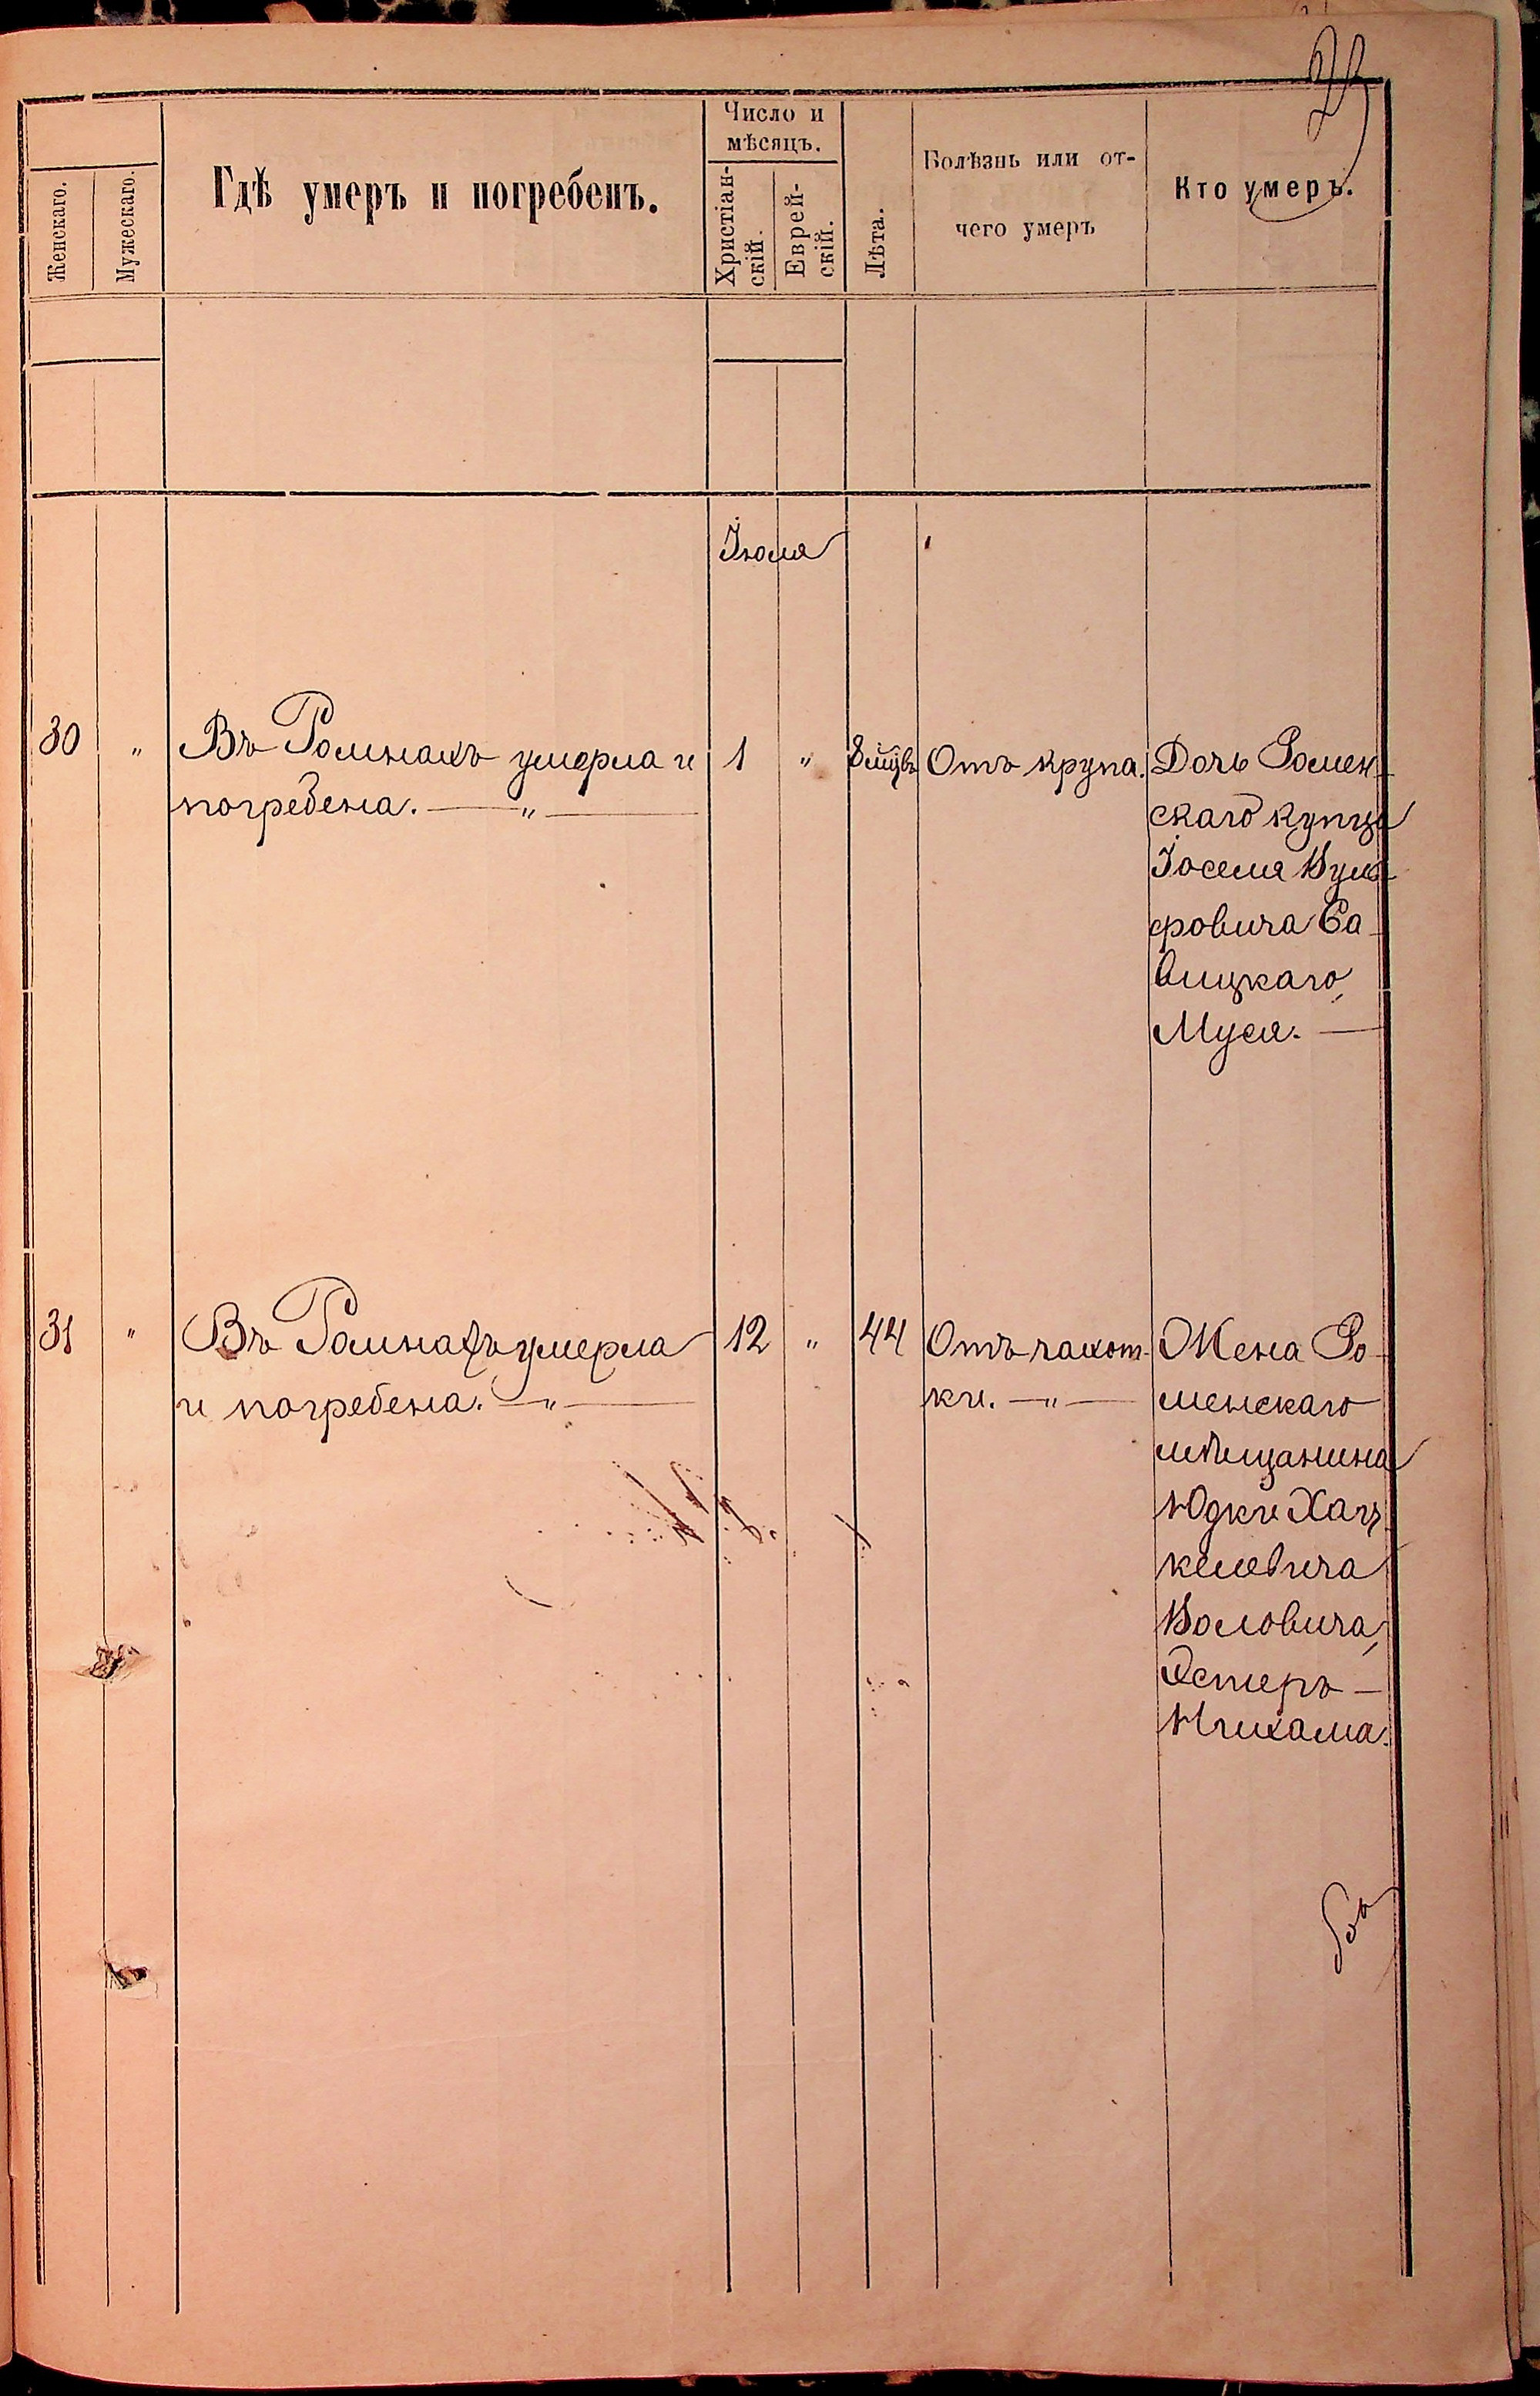 Женскаго.
Мужескаго.
Гдѣ умеръ и погребенъ.
Число и
мѣсяцъ.
Христіан-
скій.
Еврей-
скій.
Лѣта.
Болѣзнь или от-
чего умеръ
Кто умеръ.
Іюля
30 " Въ Ромнахъ умерла и 1 " 8 мцвъ Отъ крупа. Дочь Ромен-
погребена. — " — скаго купца
Іоселя Вуль-
фовича Са-
вицкаго,
Муся. —
31 " Въ Ромнахъ умерла 12 " 44 Отъ чахот- Жена Ро-
и погребена. — " — ки. — " — менскаго
мѣщанина
Юдки Хац-
келевича
Воловича,
Эстеръ —
Нихама.